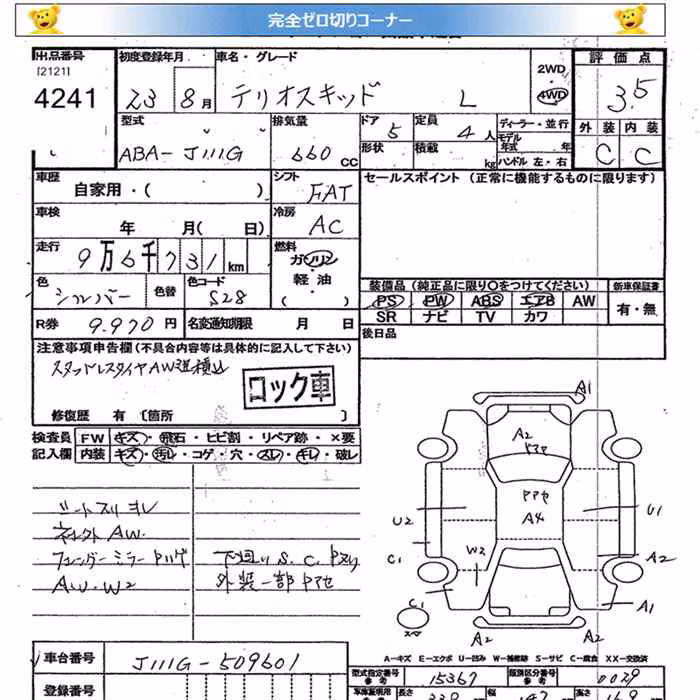 完全ゼロ切りコーナー
出品番号 初度登録年月 車名・グレード 2WD 評価点
[2121] 4WD
4241 23 8月 テリオスキッド L 3.5
型式 排気量 ドア 5 定員 4人 ディーラー・並行 外装 内装
ABA-J111G 660cc 形状 積載 kg モデル年式 年 C C
ハンドル 左・右
車歴 自家用・( ) シフト FAT セールスポイント (正常に機能するものに限ります)
車検 年 月( 日) 冷房 AC
走行 9万6千731km 燃料 ガソリン
軽油
色 シルバー 色替 色コード S28 装備品 (純正品に限り○をつけてください) 新車保証書
PS PW ABS エアB AW 有・無
R券 9.970円 名変通知期限 月 日 SR ナビ TV カワ
後日品
注意事項申告欄 (不具合内容等は具体的に記入して下さい)
スタッドレスタイヤAW送積込
ロック車
修復歴 有 [箇所 ]
検査員 FW キズ・飛石・ヒビ割・リペア跡・×要
記入欄 内装 キズ・汚レ・コゲ・穴・スレ・キレ・破レ
A1
A2
U2 A4 U1
C1 W2 A2
C1 A1
A2 A2
シートスリ ヨレ
AW.
フェンダーミラー
下廻りS.C.
AW.W2 外装一部
A-キズ E-エクボ U-凹み W-補修跡 S-サビ C-腐食 XX-交換済
車台番号 J111G-509601 型式指定番号 参考 15367 類別区分番号 参考 0029
登録番号 長さ 幅 高さ